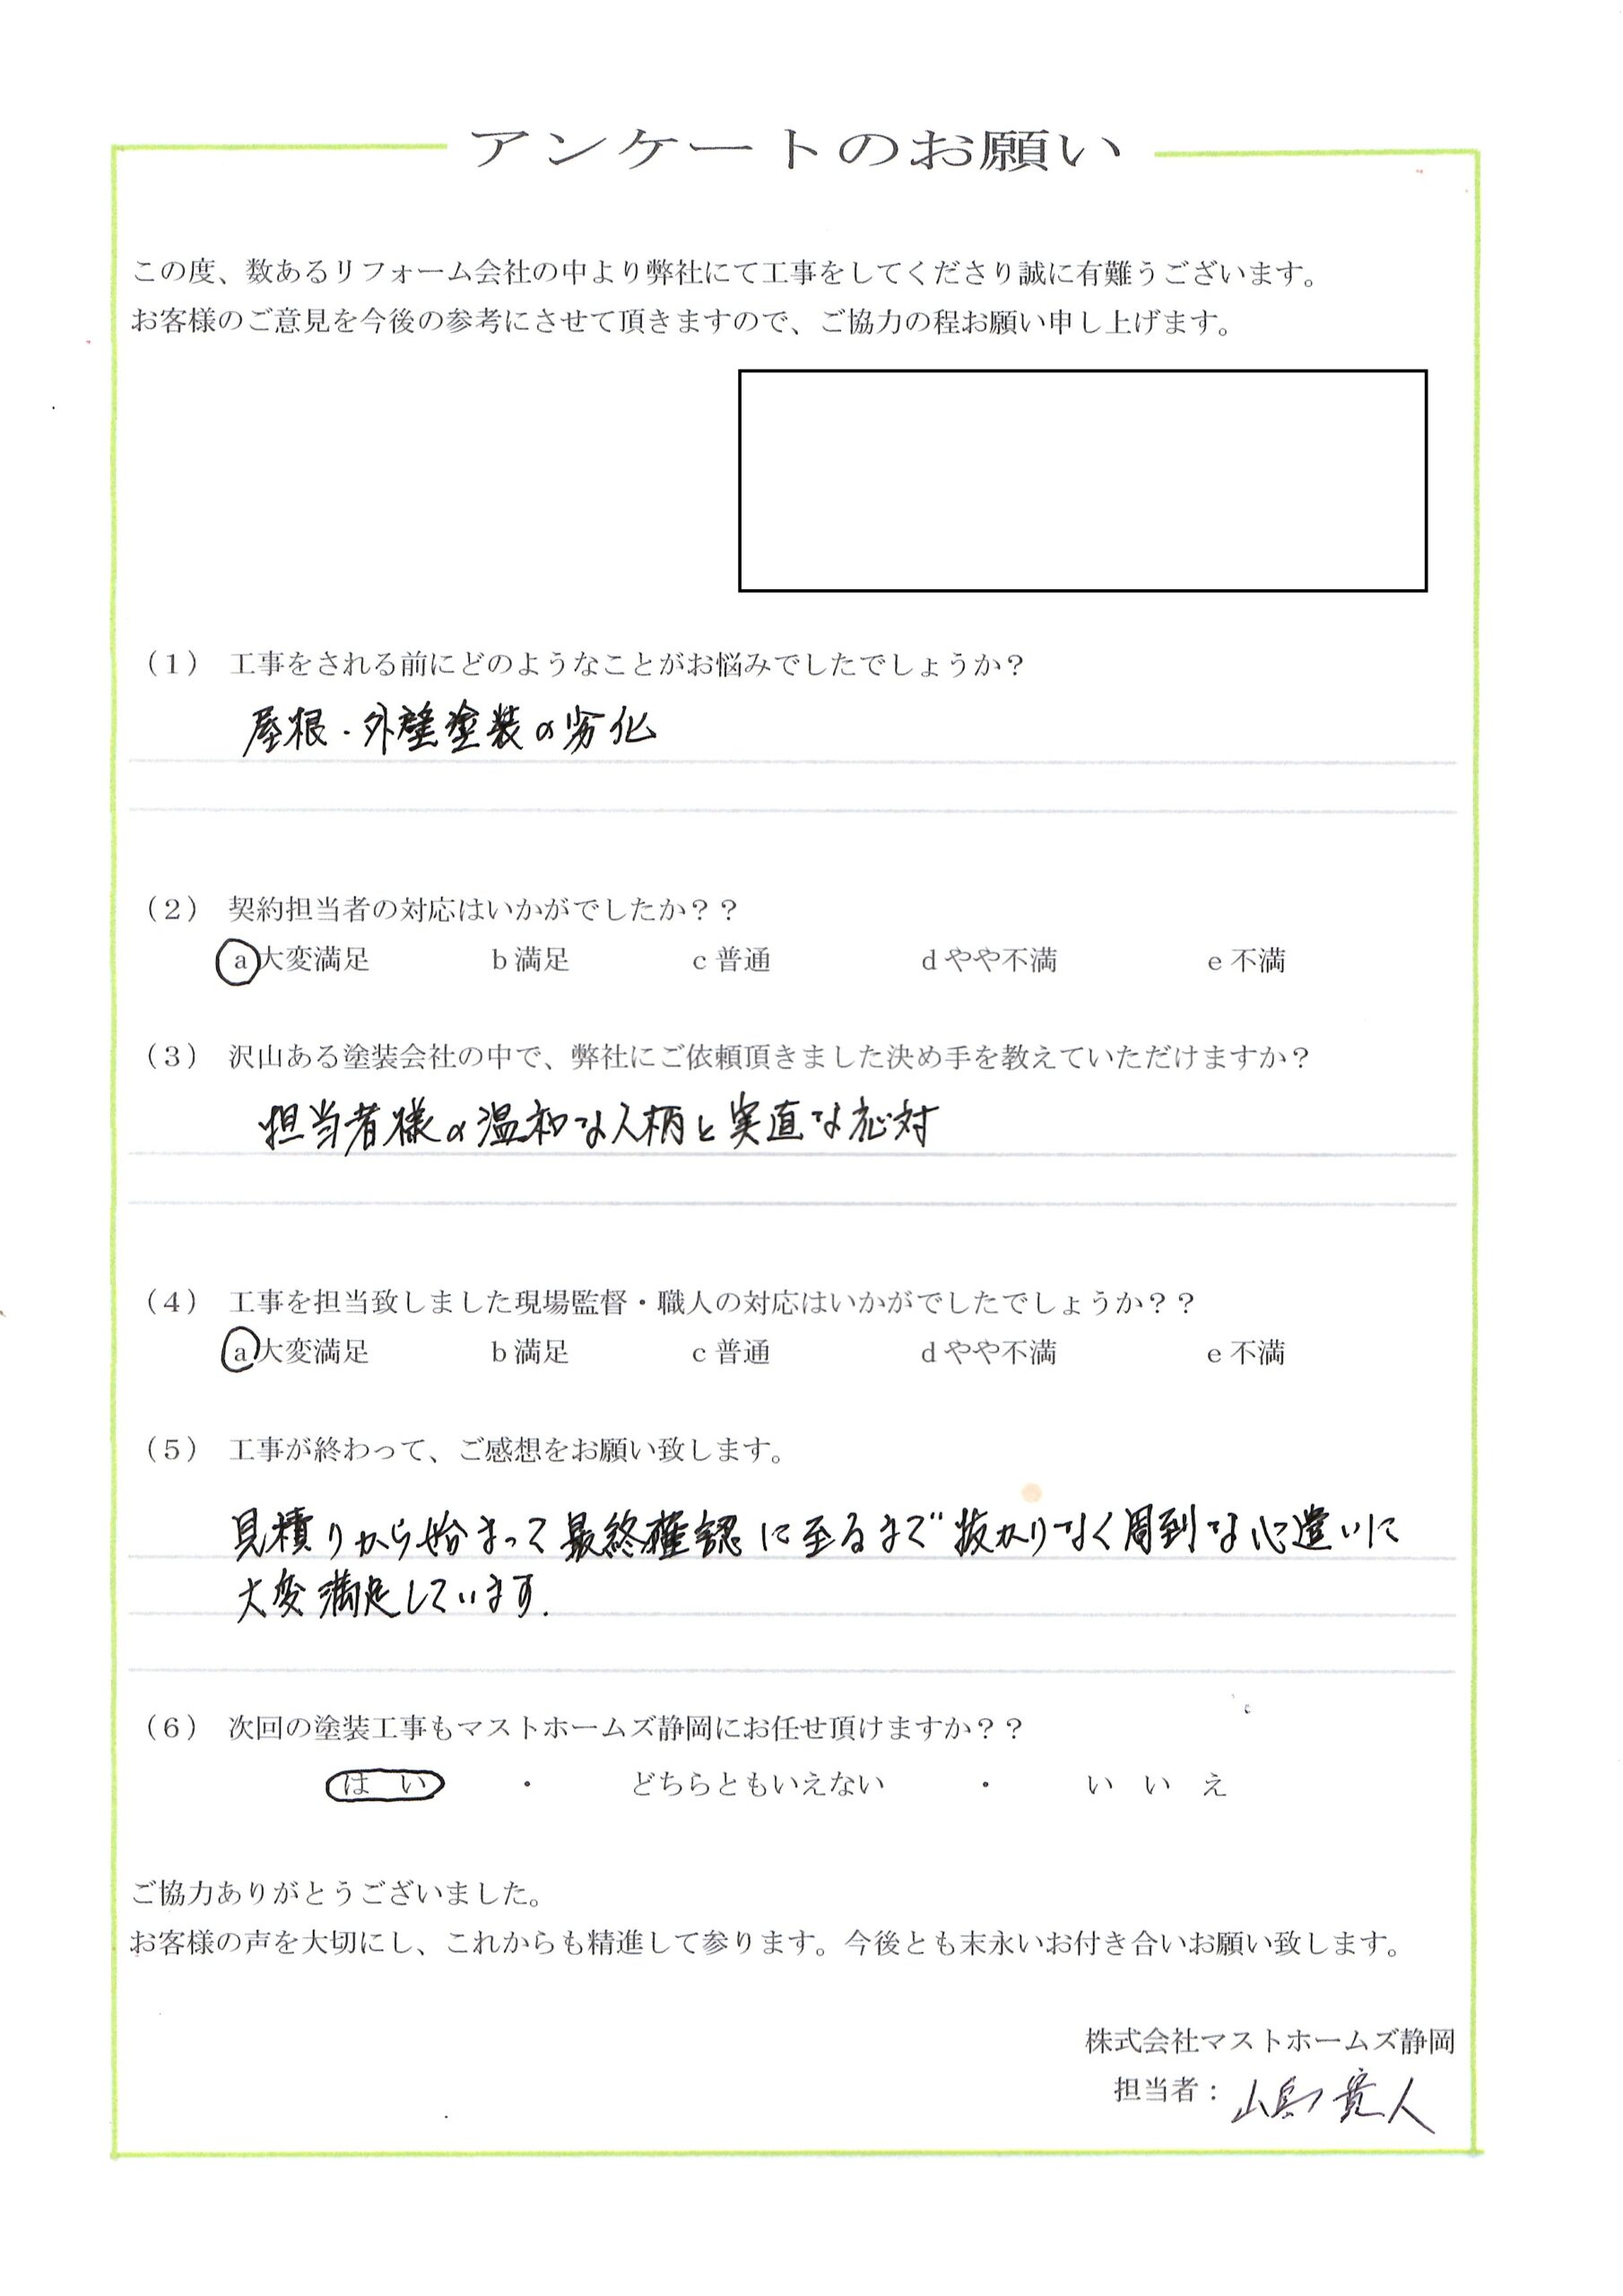 アンケートのお願い
この度、数あるリフォーム会社の中より弊社にて工事をしてくださり誠に有難うございます。
お客様のご意見を今後の参考にさせて頂きますので、ご協力の程お願い申し上げます。
（1） 工事をされる前にどのようなことがお悩みでしたでしょうか？
屋根・外壁塗装の劣化
（2） 契約担当者の対応はいかがでしたか？？
a 大変満足 b 満足 c 普通 d やや不満 e 不満
（3） 沢山ある塗装会社の中で、弊社にご依頼頂きました決め手を教えていただけますか？
担当者様の温和な人柄と実直な応対
（4） 工事を担当致しました現場監督・職人の対応はいかがでしたでしょうか？？
a 大変満足 b 満足 c 普通 d やや不満 e 不満
（5） 工事が終わって、ご感想をお願い致します。
見積りから始まって最終確認に至るまで抜かりなく周到な心遣いに
大変満足しています.
（6） 次回の塗装工事もマストホームズ静岡にお任せ頂けますか？？
はい ・ どちらともいえない ・ いいえ
ご協力ありがとうございました。
お客様の声を大切にし、これからも精進して参ります。今後とも末永いお付き合いお願い致します。
株式会社マストホームズ静岡
担当者：